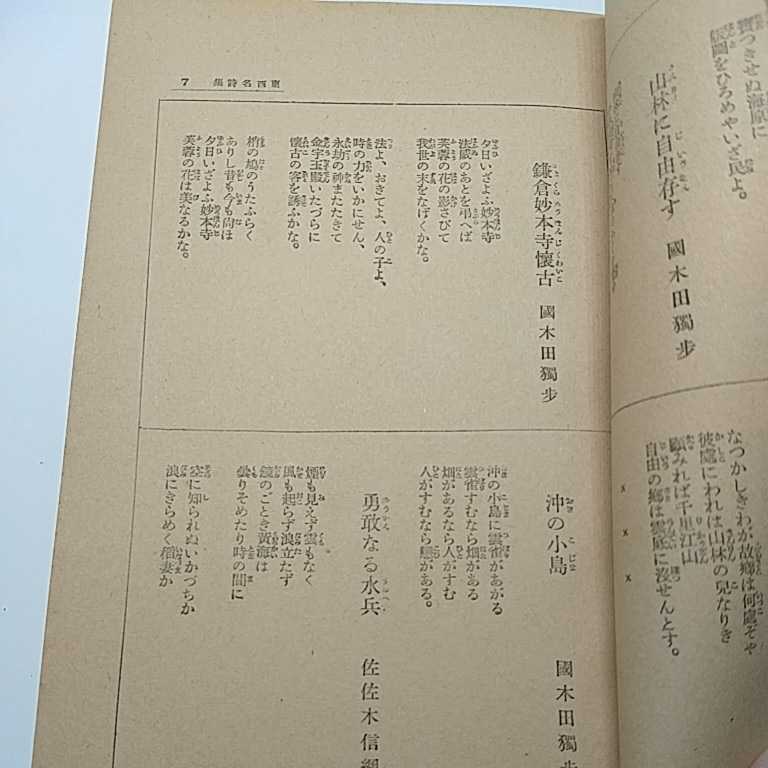 寶つきせぬ海原に
版圖をひろめやいざ民よ。
山林に自由存す
國木田獨步
なつかしきわが故鄕は何處ぞや
彼處にわれは山林の兒なりき
顧みれば千里江山
自由の鄕は雲底に沒せんとす。
× × ×
東西名詩集 7
鎌倉妙本寺懷古
國木田獨步
夕日いざよふ妙本寺
法威のあとを弔へば
芙蓉の花の影さびて
我世の末をなげくかな。
法よ、おきてよ、人の子よ、
時の力をいかにせん、
永劫の神またたきて
金字玉殿いたづらに
懷古の客を誘ふかな。
梢の鳩のうたふらく
ありし昔も今も尙ほ
夕日いざよふ妙本寺
芙蓉の花は美なるかな。
沖の小島
國木田獨步
沖の小島に雲雀があがる
雲雀すむなら畑がある
畑があるなら人がすむ
人がすむなら戀がある。
勇敢なる水兵
佐佐木信綱
煙も見えず雲もなく
風も起らず浪立たず
鏡のごとき黃海は
曇りそめたり時の間に
空に知られぬいかづちか
浪にきらめく稻妻か